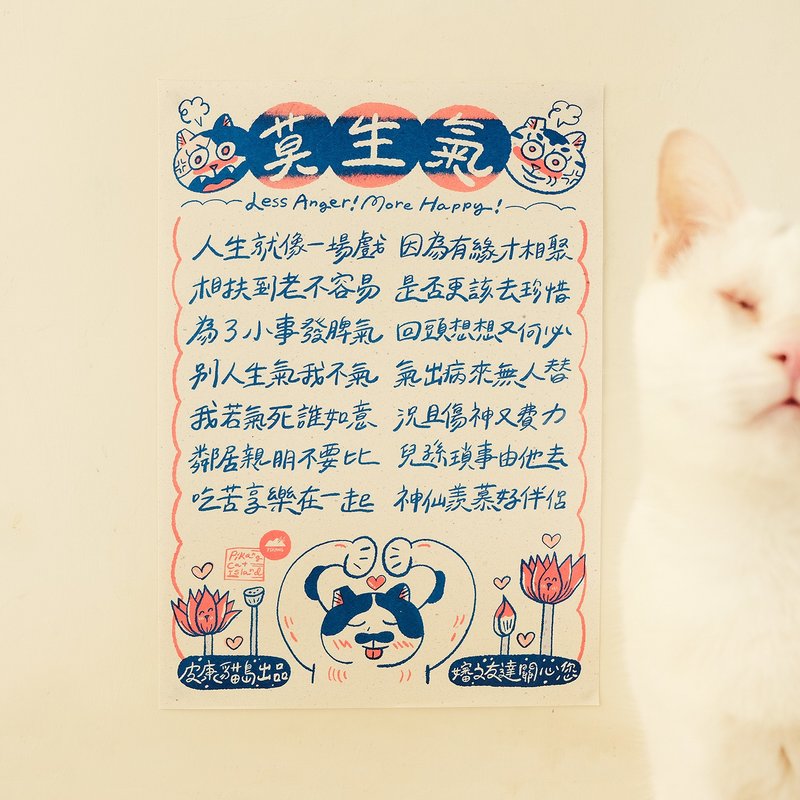 莫生氣
Less Anger! More Happy!
人生就像一場戲 因為有緣才相聚
相扶到老不容易 是否更該去珍惜
為了小事發脾氣 回頭想想又何必
別人生氣我不氣 氣出病來無人替
我若氣死誰如意 況且傷神又費力
鄰居親朋不要比 兒孫瑣事由他去
吃苦享樂在一起 神仙羨慕好伴侶
Pikang
Cat
Island
皮康貓島出品
嬸友達關心您